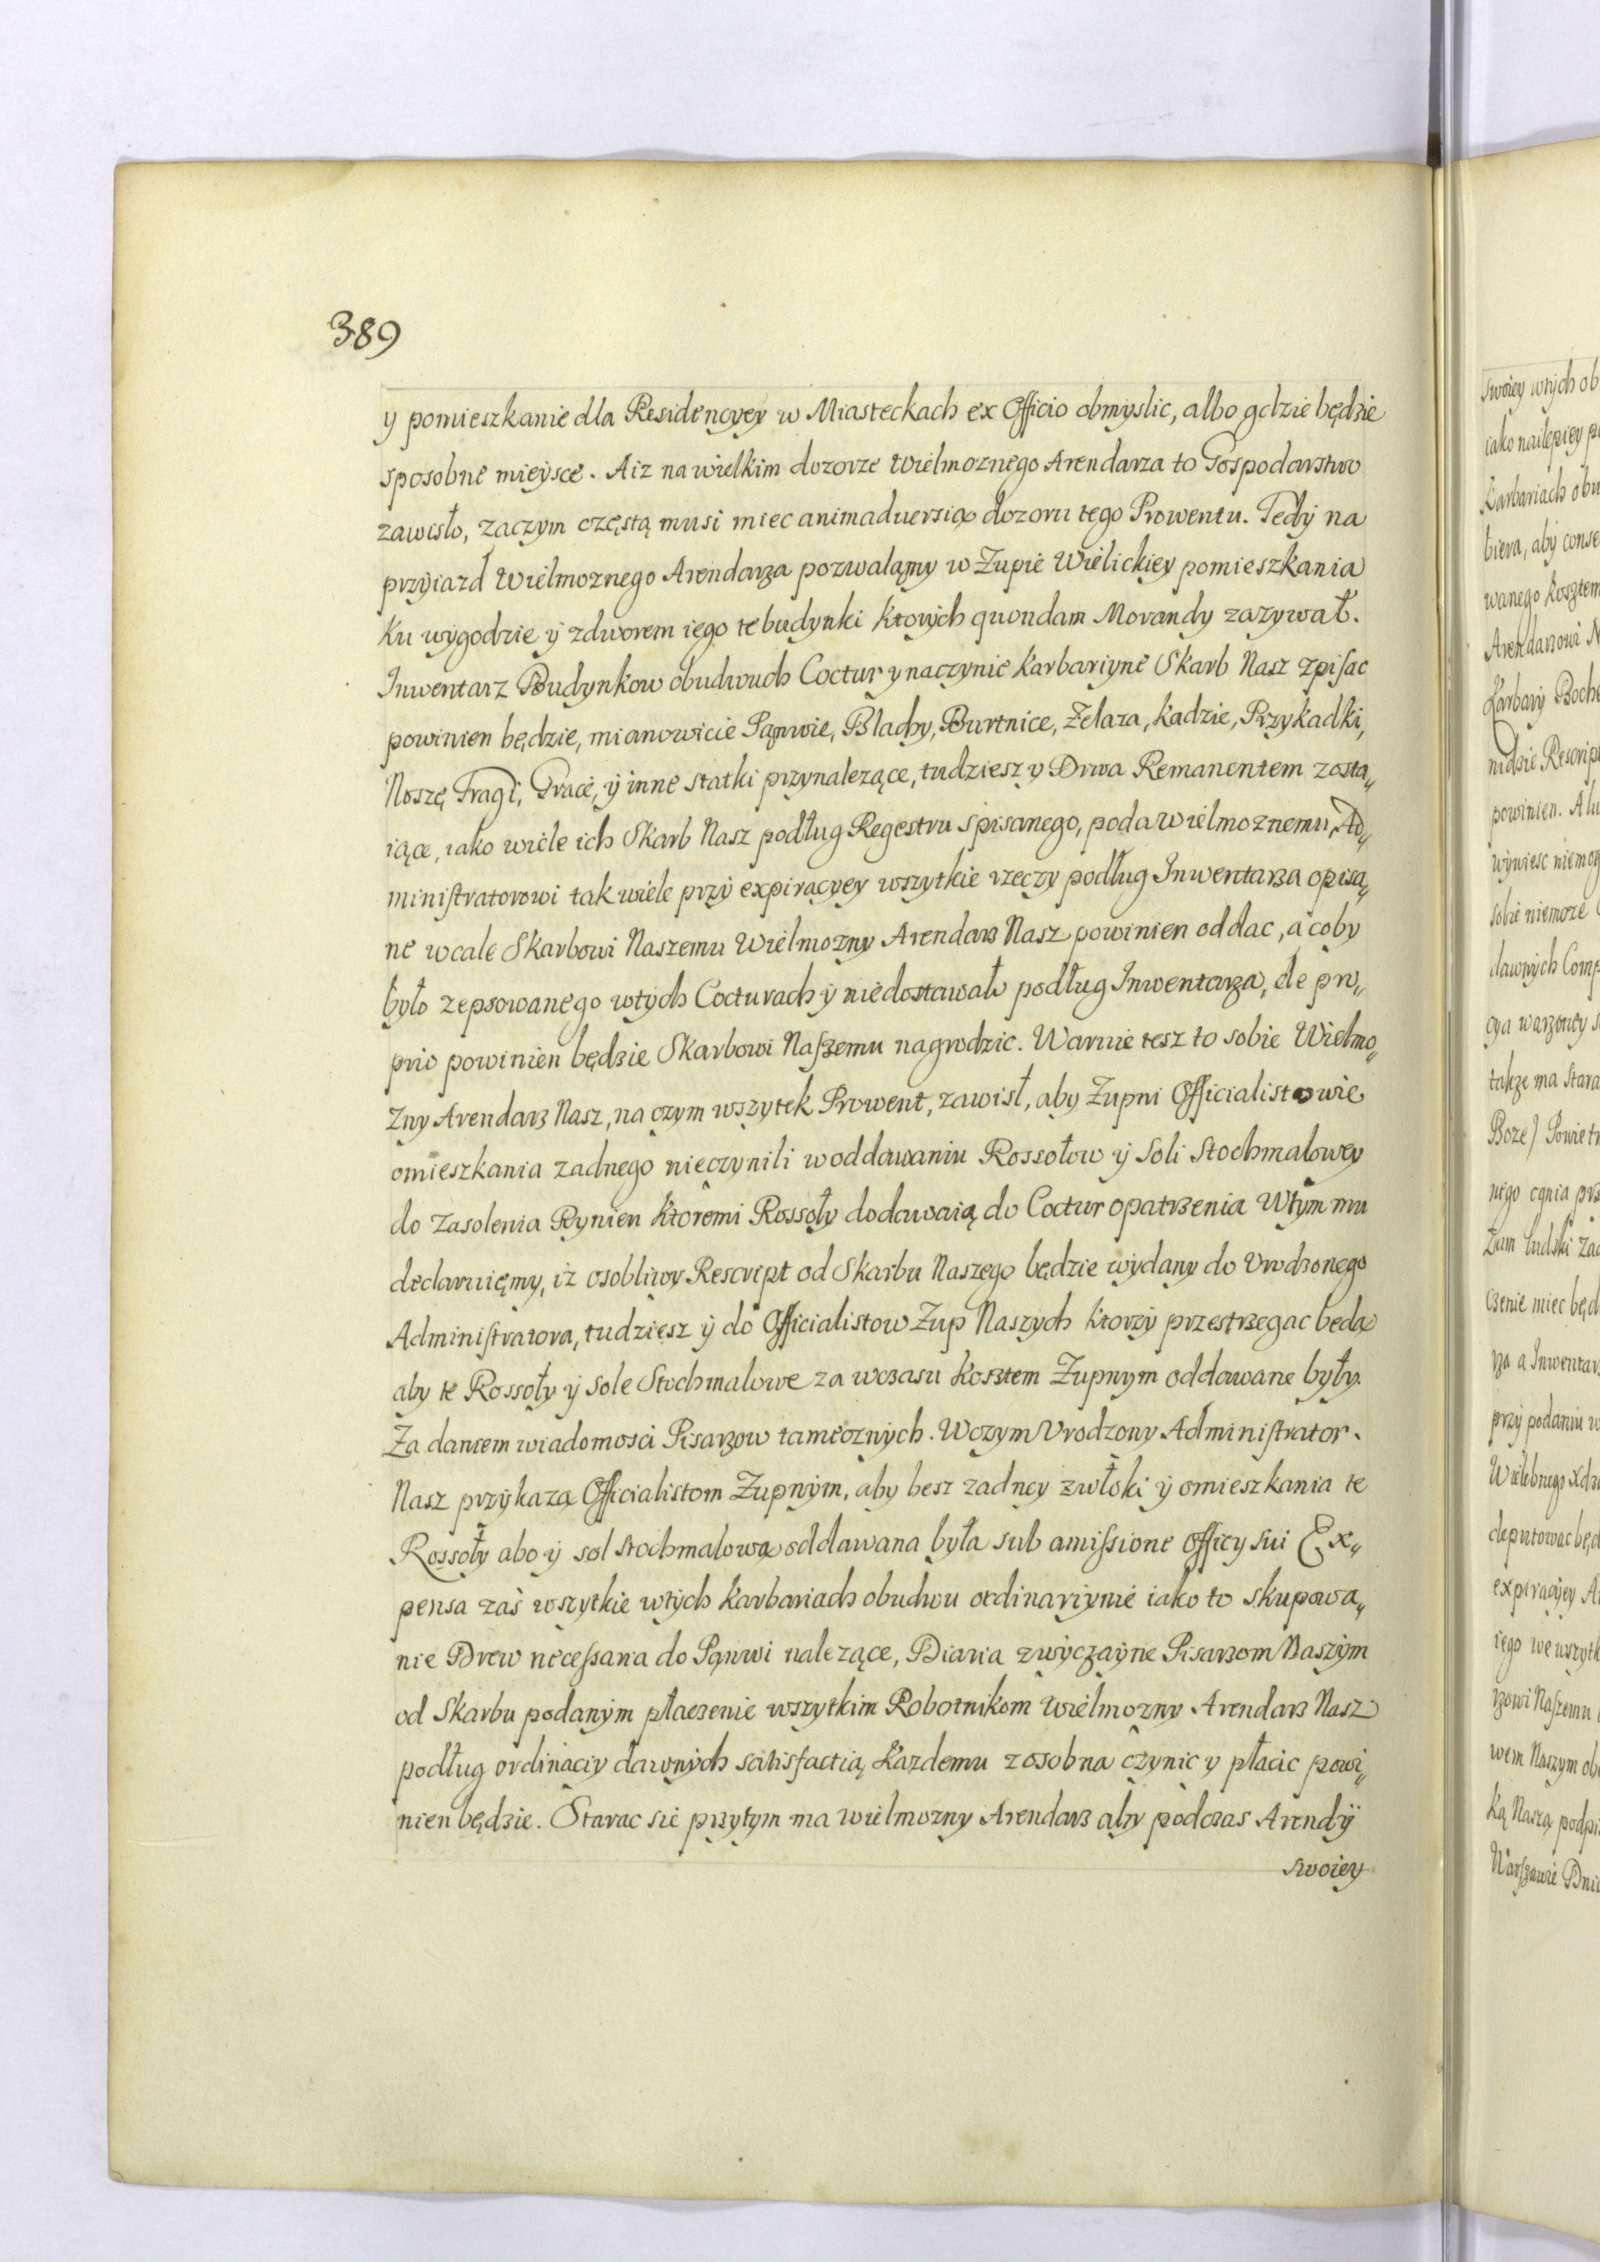 389
y pomieszkanie dla Residencyey w Miasteckach ex Officio obmyslic, albo gdzie będzie
sposobne mieysce. A iz na wielkim dozorze Wielmoznego Arendarza to Gospodarstwo
zawisło, zaczym częstą musi miec animaduersią dozoru tego Prowentu. Tedy na
przyiazd Wielmoznego Arendarza pozwalamy w Zupie Wielickiey pomieszkania
Ku wygodzie y zdworem iego te budynki ktorych quondam Morandy zazywał.
Inwentarz Budynkow obudwuch Coctur y naczynie karbariyne Skarb Nasz zpisac
powinien będzie, mianowicie Pąnwie, Blachy, Burtnice, Zelaza, kadzie, Przykadki,
Noszę, Tragi, Grace, y inne statki przynalezące, tudziesz y Drwa Remanentem zosta„
iące, iako wiele ich Skarb Nasz podług Regestru spisanego, poda Wielmoznemu Ad„
ministratorowi tak wiele przy expiracyey wszytkie rzeczy podług Inwentarza opisa„
ne wcale Skarbowi Naszemu Wielmozny Arendarz Nasz powinien oddac, a coby
było zepsowanego wtych Cocturach y niedostawało podług Inwentarza, de pro„
prio powinien będzie Skarbowi Naszemu nagrodzic. Waruie tesz to sobie Wielmo„
zny Arendarz Nasz, na czym wszytek Prowent, zawisł, aby Zupni Officialistowie
omieszkania zadnego nieczynili w oddawaniu Rossołow y Soli Stochmalowey
do zasolenia Rynien ktoremi Rossoły dodawaią do Coctur opatrzenia Wtym mu
declaruięmy, iz osobliwy Rescript od Skarbu Naszego będzie wydany do Vrodzonego
Administratora, tudziesz y do Officialistow Zup Naszych ktorzy przestrzegac będa
aby te Rossoły y Sole Stochmalowe za wczasu kosztem Zupnym oddawane były.
Za daniem wiadomosci Pisarzow tamecznych. Wczym Vrodzony Administrator
Nasz przykazą Officialistom Zupnym, aby besz zadney zwłoki y omieszkania te
Rossoły abo y sol stochmalowa oddawana była sub amissione officy sui Ex„
pensa zaś wszytkie wtych karbariach obudwu ordinariynie iako to skupowa„
nie Drew necessaria do Pąnwi nalezące, Diaria zwyczayne Pisarzom Naszym
od Skarbu podanym płaczenie wszytkim Robotnikom Wielmozny Arendarz Nasz
podług ordinaciy dawnych satisfactią kazdemu z osobna czynic y płacic powi„
nien będzie. Starac sie przytym ma Wielmozny Arendarz aby podczas Arendy
swoiey